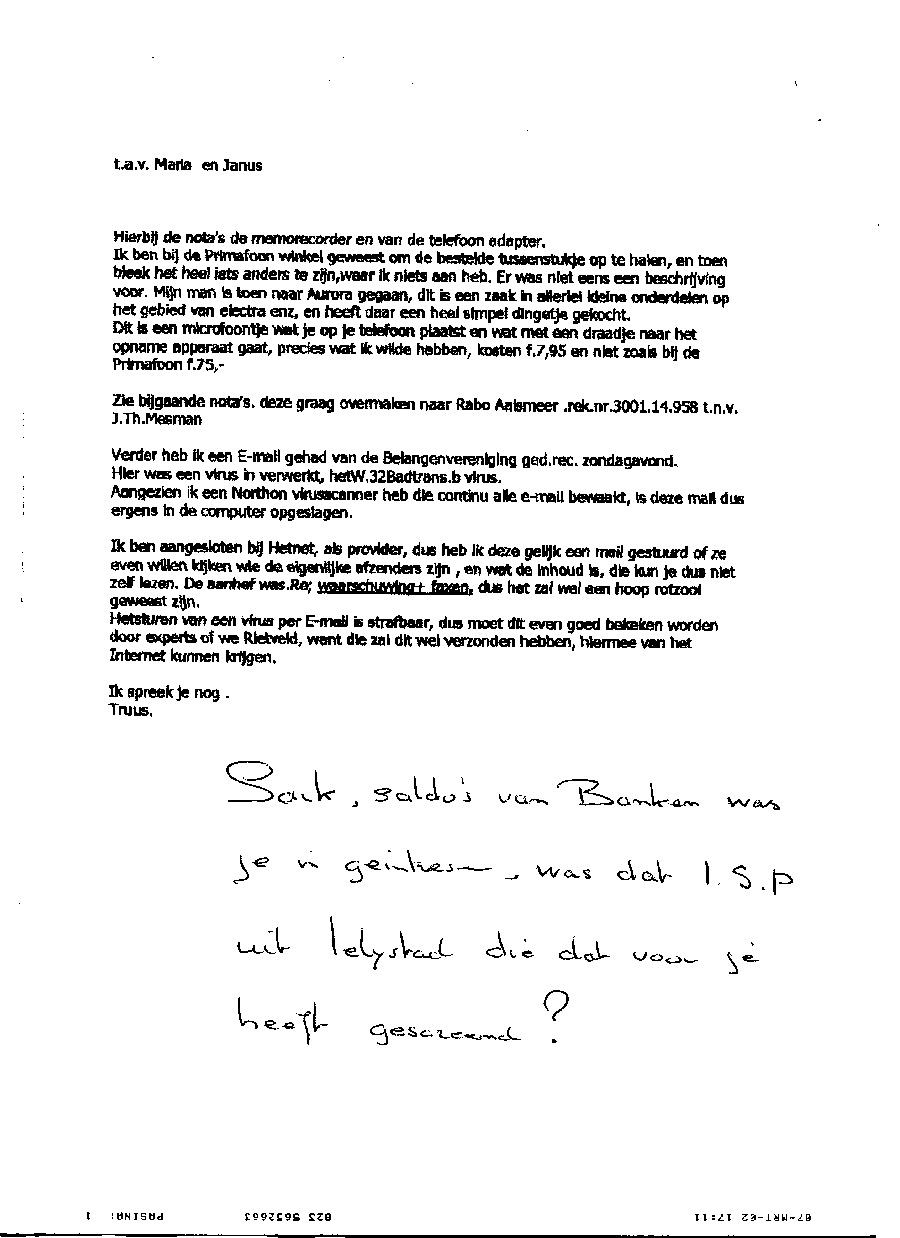 t.a.v. Maria en Janus
Hierbij de nota's de memorecorder en van de telefoon adapter.
Ik ben bij de Primafoon winkel geweest om de bestelde tussenstukje op te halen, en toen
bleek het heel iets anders te zijn,waar ik niets aan heb. Er was niet eens een beschrijving
voor. Mijn man is toen naar Aurora gegaan, dit is een zaak in allerlei kleine onderdelen op
het gebied van electra enz, en heeft daar een heel simpel dingetje gekocht.
Dit is een microfoontje wat je op je telefoon plaatst en wat met een draadje naar het
opname apparaat gaat, precies wat ik wilde hebben, kosten f.7,95 en niet zoals bij de
Primafoon f.75,-
Zie bijgaande nota's. deze graag overmaken naar Rabo Aalsmeer .rek.nr.3001.14.958 t.n.v.
J.Th.Mesman
Verder heb ik een E-mail gehad van de Belangenvereniging ged.rec. zondagavond.
Hier was een virus in verwerkt, hetW.32Badtrans.b virus.
Aangezien ik een Northon virusscanner heb die continu alle e-mail bewaakt, is deze mail dus
ergens in de computer opgeslagen.
Ik ben aangesloten bij Hetnet, als provider, dus heb ik deze gelijk een mail gestuurd of ze
even willen kijken wie de eigenlijke afzenders zijn , en wat de inhoud is, die kun je dus niet
zelf lezen. De aanhef was.Re; waarschuwing+ faxen, dus het zal wel een hoop rotzooi
geweest zijn.
Hetsturen van een virus per E-mail is strafbaar, dus moet dit even goed bekeken worden
door experts of we Rietveld, want die zal dit wel verzonden hebben, hiermee van het
Internet kunnen krijgen.
Ik spreek je nog .
Truus.
saldo's van Banken was
je in , was dat I.S.P
uit lelystad die dat voor je
heeft gescreend ?
07-MRT-02 17:11 023 5652663 PAGINA: 1